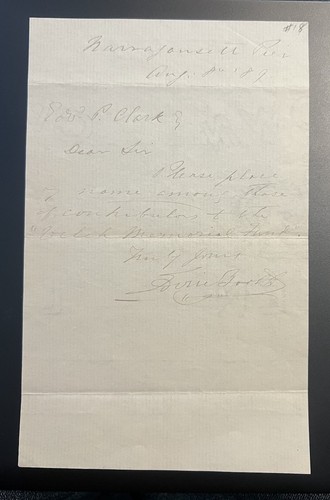 #18
Narragansett Pier
Aug. '89
Edw. P. Clark
Dear Sir
Please place
my name among those
of contributors to the
Memorial Fund
yours